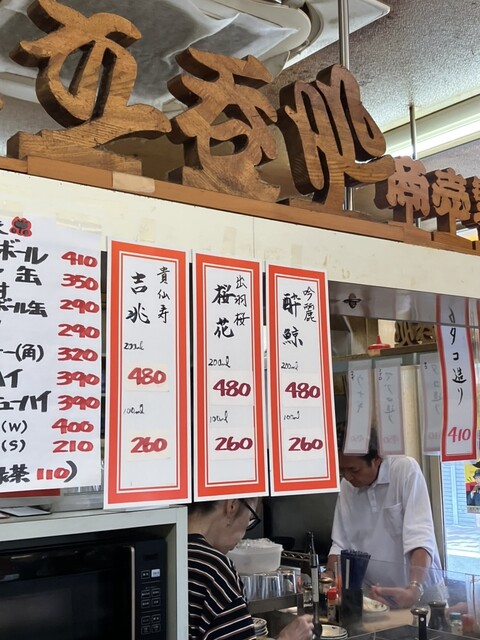 立呑処
ボール 410
缶 350
ボール缶 290
290
(角) 320
ハイ 390
ューハイ 390
(W) 400
(S) 210
緑茶 110)
貴仙寿
吉兆
200ml
480
100ml
260
出羽桜
桜花
200ml
480
100ml
260
吟麗
酔鯨
200ml
480
100ml
260
タコ造り
410